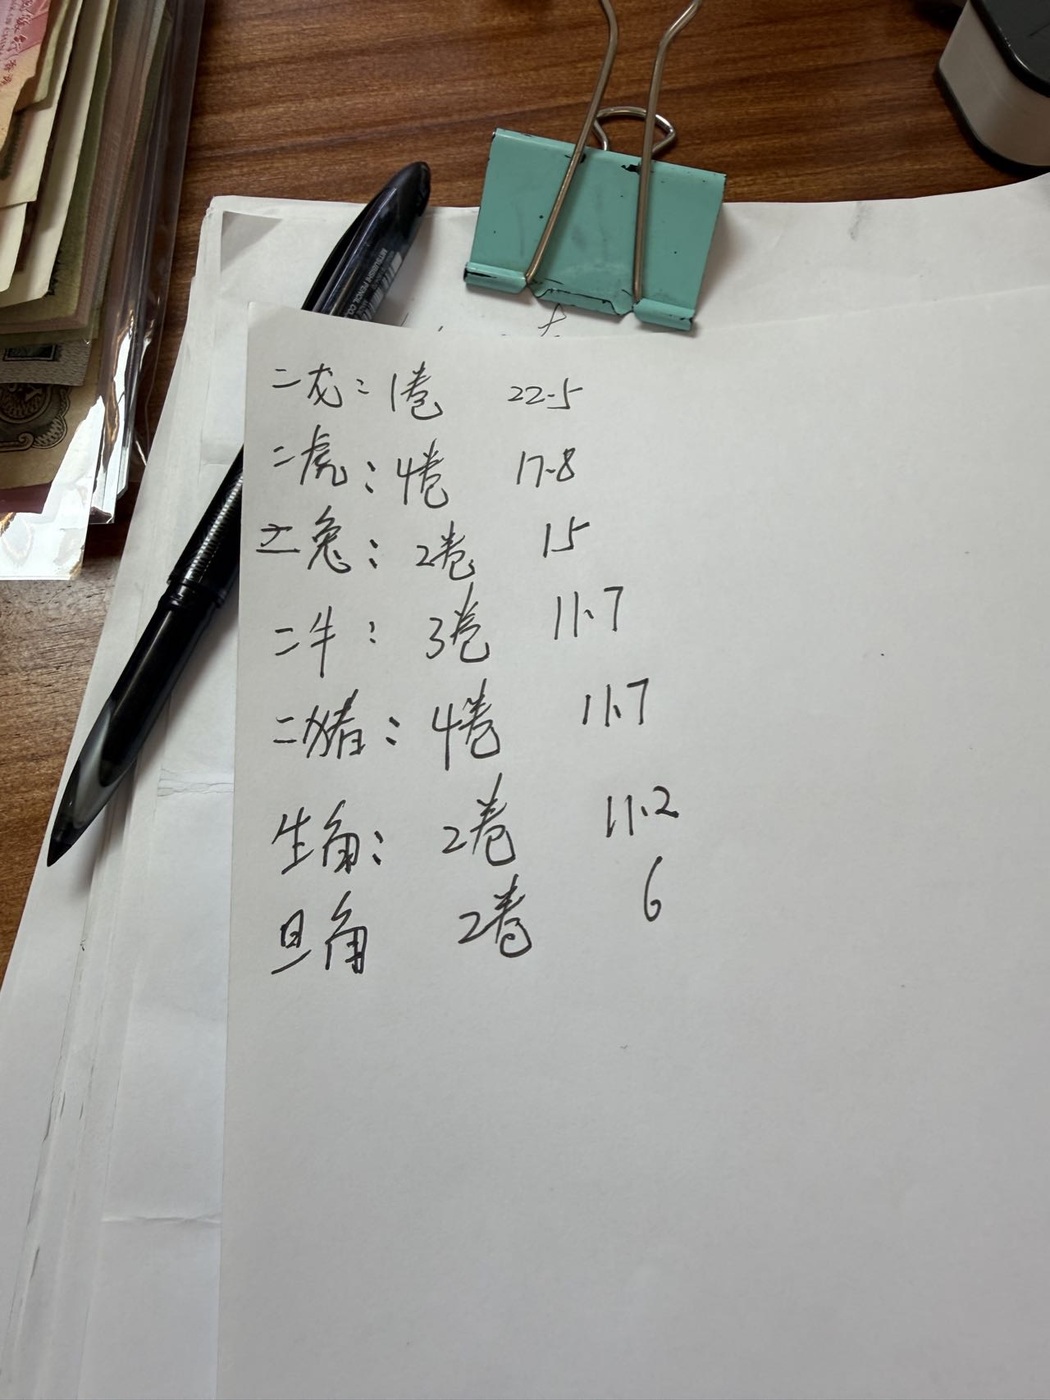 二龙：1卷 22.5
二虎：4卷 17.8
二兔：2卷 15
二牛：3卷 11.7
二猪：4卷 11.7
生角：2卷 11.2
旦角 2卷 6